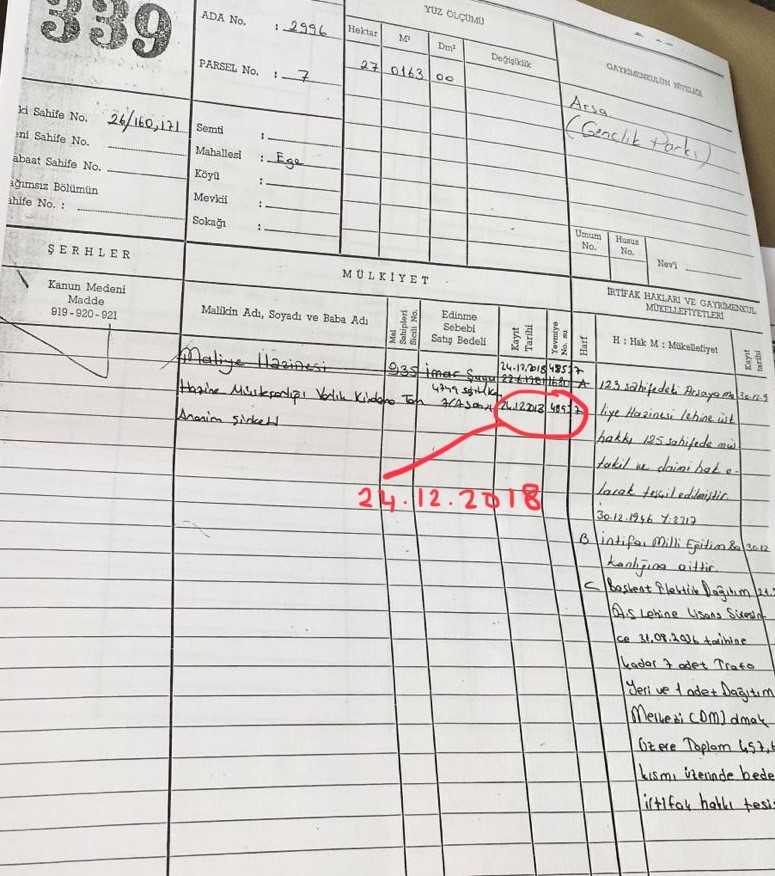 339
ADA No. : 2996
PARSEL No. : 7
YÜZ ÖLÇÜMÜ
Hektar M² Dm² Değişiklik
27 0163 00
GAYRİMENKULÜN NİTELİĞİ
Arsa
(Gençlik Parkı)
ki Sahife No. 26/160,171
eni Sahife No.
abaat Sahife No.
ağımsız Bölümün
ahife No. :
Semti :
Mahallesi : Ege
Köyü :
Mevkii :
Sokağı :
Umum No.
Husus No.
Nev'i
ŞERHLER
Kanun Medeni
Madde
919-920-921
MÜLKİYET
Malikin Adı, Soyadı ve Baba Adı
Mal Sahipleri Sicili No.
Edinme Sebebi Satış Bedeli
Kayıt Tarihi
Yevmiye No. su
Maliye Hazinesi 935 İmar
24.12.2018
Hazine Müsteşarlığı Varlık Kiralama
4749 sayılı
24.12.2018
Anonim Şirketi
24.12.2018
İRTİFAK HAKLARI VE GAYRİMENKUL
MÜKELLEFİYETLERİ
Harf
H : Hak M : Mükellefiyet
Kayıt tarihi
A 123 sahifedeki
liye Hazinesi lehine üst
hakkı 125 sahifede müs
takil ve daimi hak o-
larak tescil edilmiştir.
30.12.1946 Y:3717
B İntifaı Milli Eğitim Ba 30.12
kanlığına aittir.
C Başkent Elektrik Dağıtım
A.Ş Lehine Lisans Süresin
ce 31.08.2036 tarihine
kadar 7 adet Trafo
Yeri ve 1 adet Dağıtım
Merkezi (DM) olmak
Üzere Toplam 457,
kısmı üzerinde bede
irtifak hakkı tesis